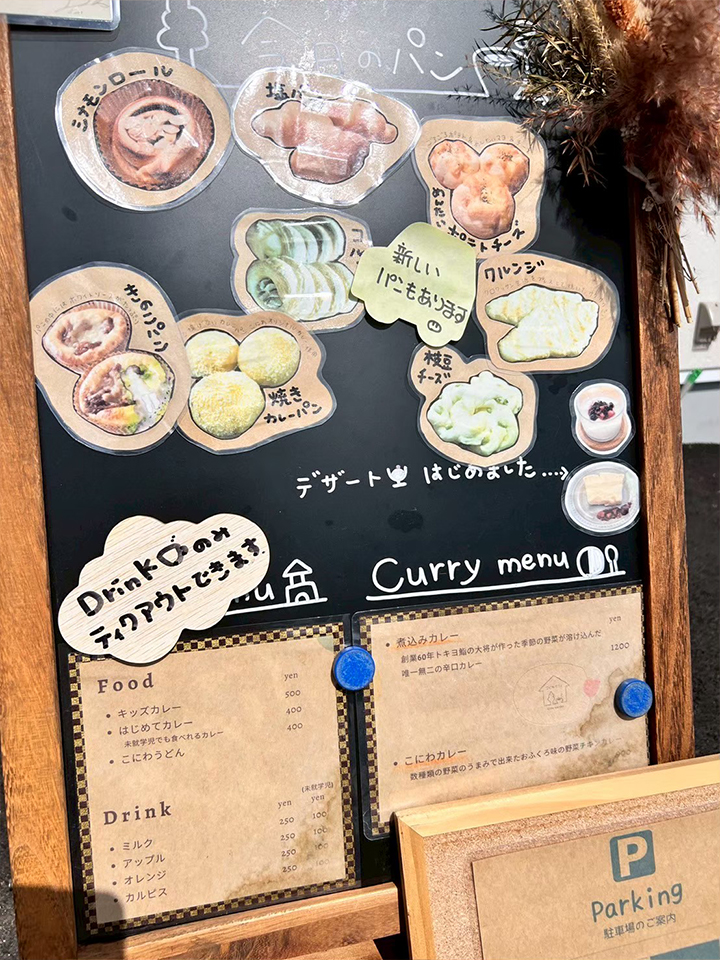 今日のパン
シナモンロール
塩パ
めんたいポテトチーズ
新しい
パンもあります
クルンジ
きのこパンツ
焼き
カレーパン
枝豆
チーズ
デザート はじめました....→
Drinkのみ
テイクアウトできます.
nu
Curry menu
Food
yen
• キッズカレー 500
• はじめてカレー 400
未就学児でも食べれるカレー
• こにわうどん 400
Drink
(未就学児)
yen yen
• ミルク 250 100
• アップル 250 100
• オレンジ 250 100
• カルピス 250 100
yen
• 煮込みカレー 1200
創業60年トキヨ鮨の大将が作った季節の野菜が溶け込んだ
唯一無二の辛口カレー
• こにわカレー
数種類の野菜のうまみで出来たおふくろ味の野菜チキンカレー
P
Parking
駐車場のご案内